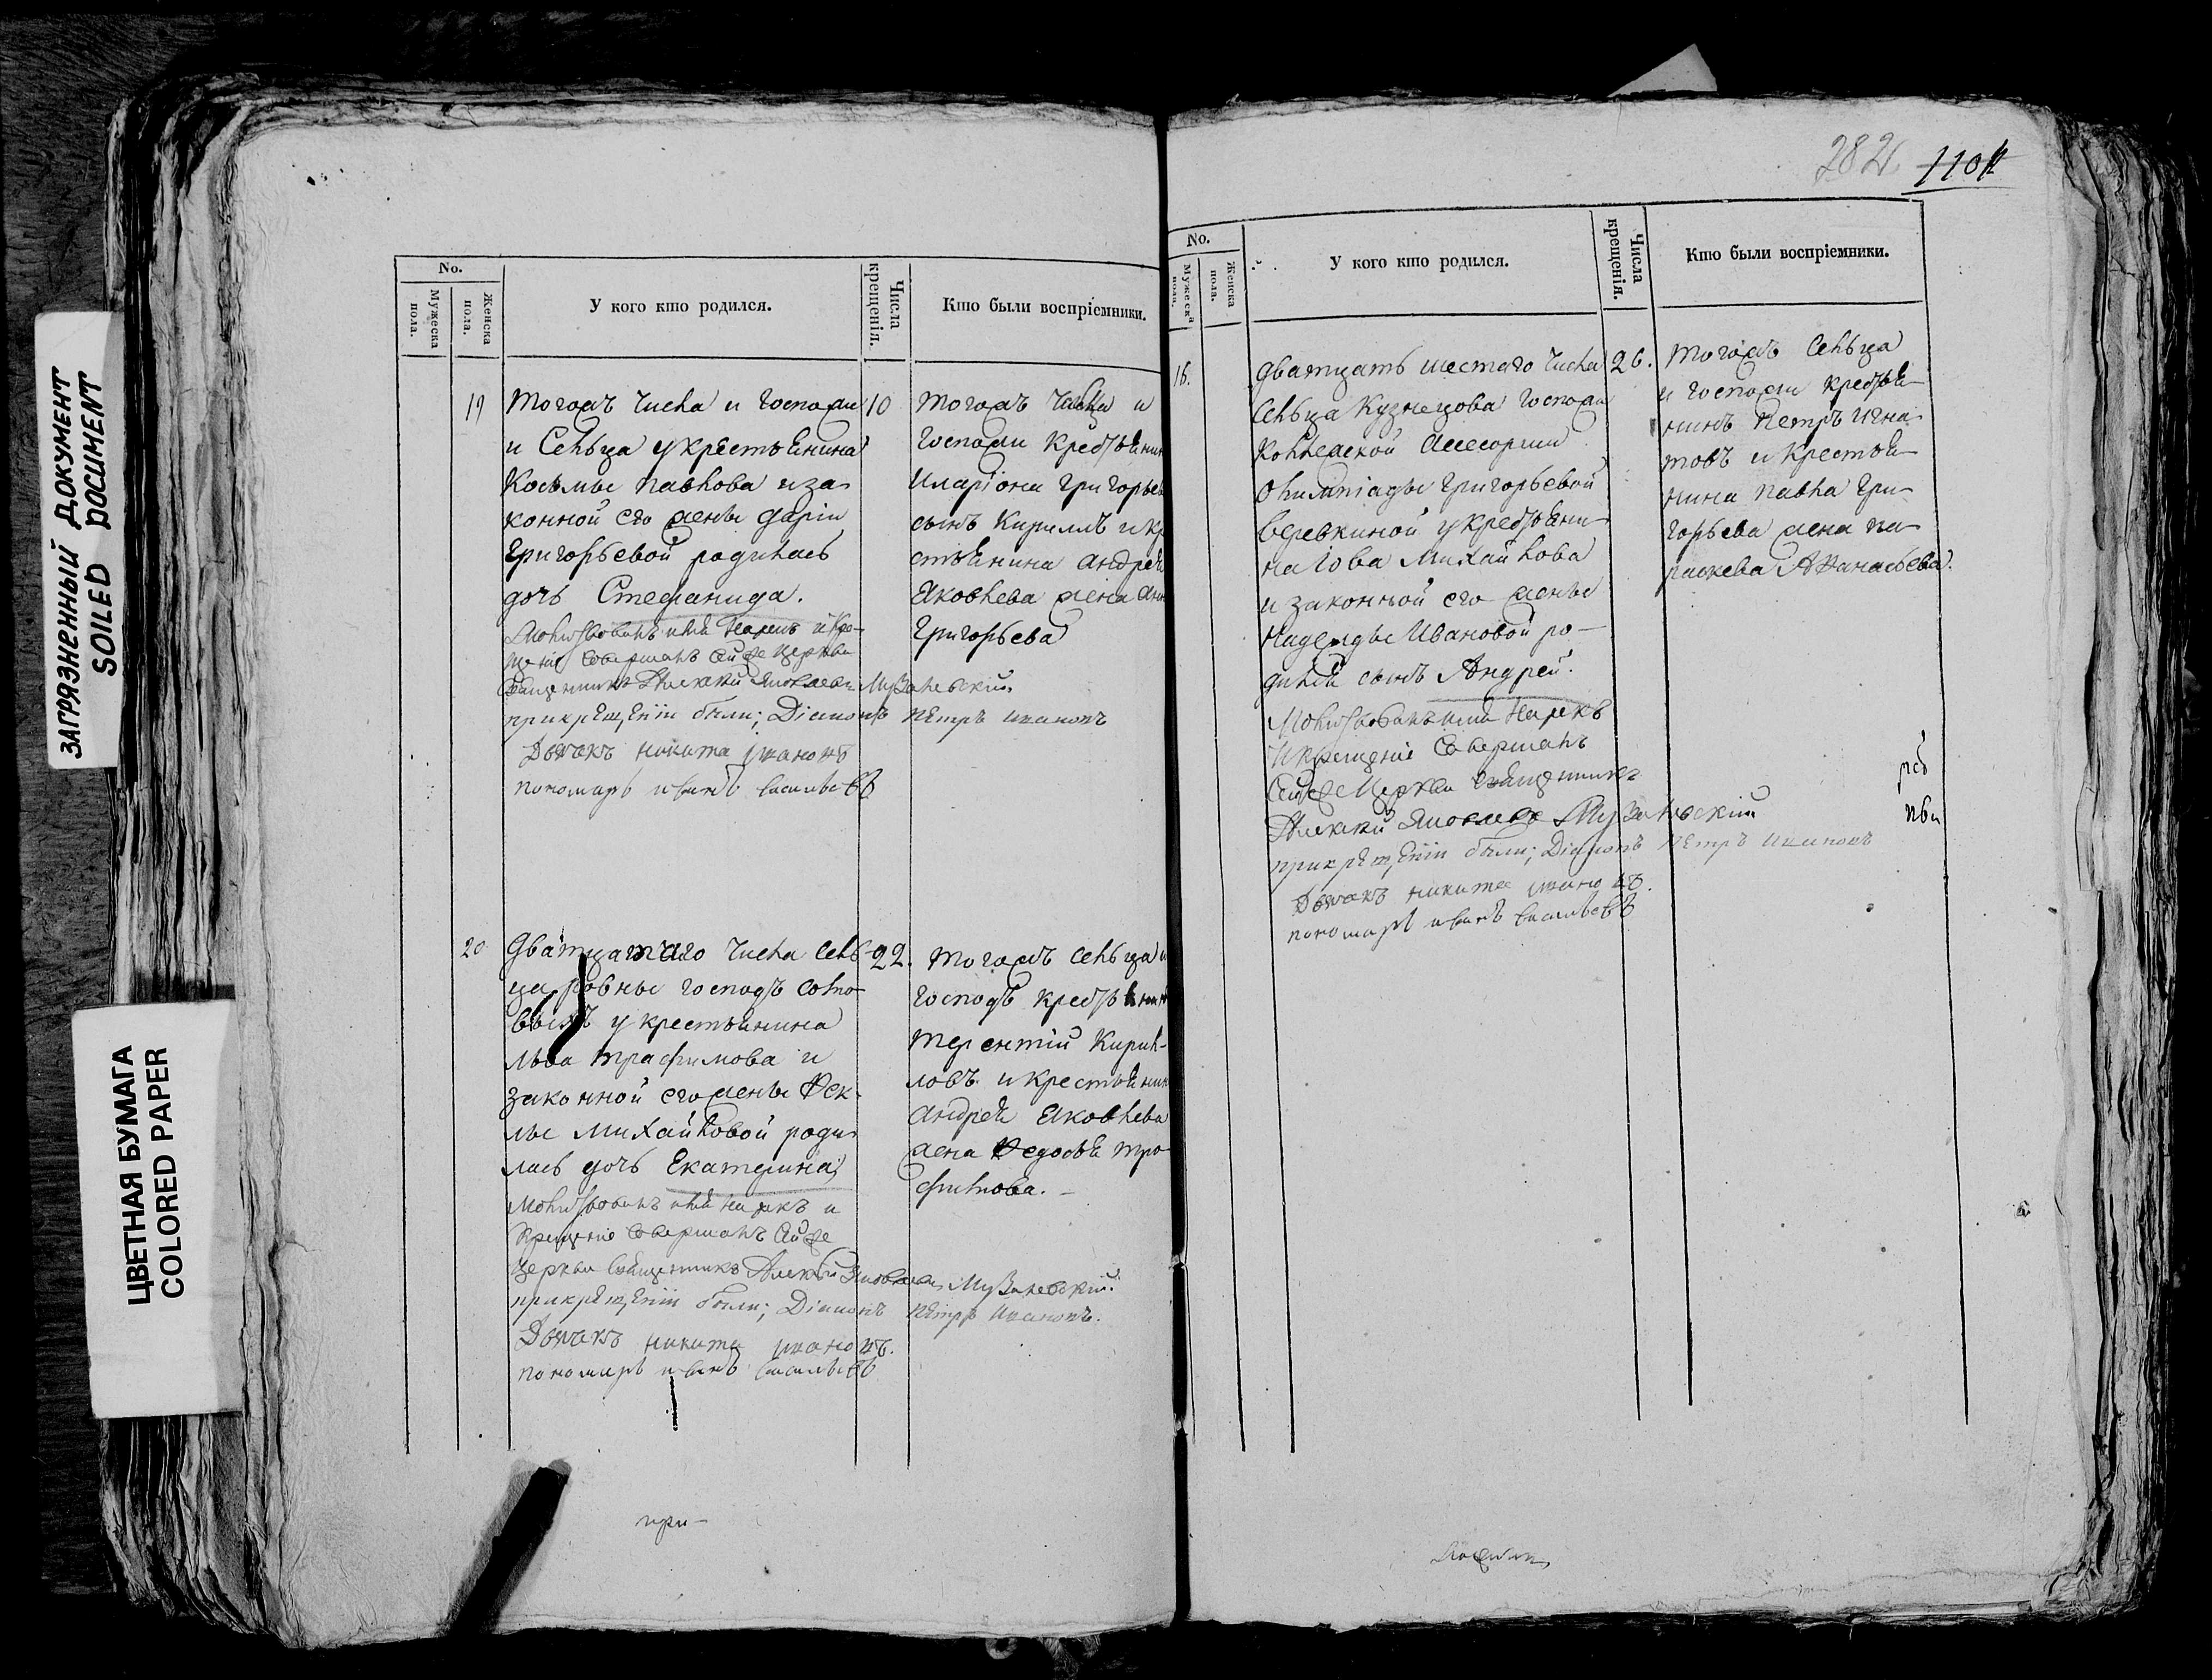 ЗАГРЯЗНЕННЫЙ ДОКУМЕНТ
SOILED DOCUMENT
ЦВЕТНАЯ БУМАГА
COLORED PAPER
No.
Мужеска пола.
Женска пола.
У кого кто родился.
Числа крещенія.
Кто были воспріемники.
19
Тогожъ числа и Госпожи
и Сельца у крестьянина
Космы Павлова и за
конной его жены Даріи
Григорьевой родилась
дочь Стефанида.
Молитвовалъ имя нарекъ и Кре-
щеніе совершалъ
священникъ Алексій Яковлевъ
при крещеніи были; Діаконъ Петръ Ивановъ
Дьячекъ Никита Ивановъ
пономарь Иванъ Васильевъ
10
Тогожъ числа и
Госпожи крестьянин
Иларіона Григорьев
сынъ Кириллъ и кр
стьянина Андрея
Яковлева жена
Григорьева
20
Дватцатаго числа сель
ца Ровны господъ
у крестьянина
Льва Трафимова и
законной его жены Фек
лы Михайловой роди
лась дочь Екатерина
Молитвовалъ имя нарекъ и
Крещеніе совершалъ
церкви священникъ Алексій Яковлевъ
при крещеніи были; Діаконъ Петръ Ивановъ.
Дьячекъ Никита Ивановъ.
пономарь Иванъ Васильевъ
22.
Тогожъ сельца и
господъ крестьянин
Терентій Кирил-
ловъ и крестьянин
Андрея Яковлева
жена Федосья Тро
фимова.
при-
282
1101
No.
Мужеска пола.
Женска пола.
У кого кто родился.
Числа крещенія.
Кто были воспріемники.
16.
дватцать шестаго числа
Сельца Кузнецова Госпожи
Коллежской Асессорши
Олимпіады Григорьевой
Веревкиной у крестьяни
на Іова Михайлова
и законной его жены
Надежды Ивановой ро-
дился сынъ Андрей.
Молитвовалъ имя нарекъ
и крещеніе совершалъ
церкви священникъ
Алексій Яковлевъ
при крещеніи были; Діаконъ Петръ Ивановъ
Дьячекъ Никита Ивановъ.
пономарь Иванъ Васильевъ
26.
Тогожъ Сельца
и Госпожи крестья-
нинъ Петръ Игна
товъ и Крестья-
нина Павла Гри-
горьева жена Па
раскева Афанасьева.